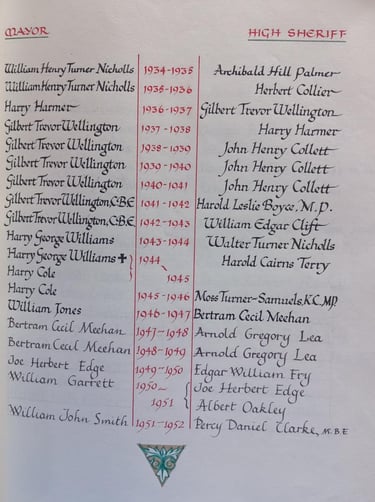 MAYOR HIGH SHERIFF
William Henry Turner Nicholls 1934-1935 Archibald Hill Palmer
William Henry Turner Nicholls 1935-1936 Herbert Collier
Harry Harmer 1936-1937 Gilbert Trevor Wellington
Gilbert Trevor Wellington 1937-1938 Harry Harmer
Gilbert Trevor Wellington 1938-1939 John Henry Collett
Gilbert Trevor Wellington 1939-1940 John Henry Collett
Gilbert Trevor Wellington 1940-1941 John Henry Collett
Gilbert Trevor Wellington, C.B.E. 1941-1942 Harold Leslie Boyce, M.P.
Gilbert Trevor Wellington, C.B.E. 1942-1943 William Edgar Clift
Harry George Williams 1943-1944 Walter Turner Nicholls
Harry George Williams ✝ } 1944 Harold Cairns Terry
Harry Cole 1945
Harry Cole 1945-1946 Moss Turner-Samuels, K.C. M.P.
William Jones 1946-1947 Bertram Cecil Meehan
Bertram Cecil Meehan 1947-1948 Arnold Gregory Lea
Bertram Cecil Meehan 1948-1949 Arnold Gregory Lea
Joe Herbert Edge 1949-1950 Edgar William Fry
William Garrett 1950- { Joe Herbert Edge
1951 Albert Oakley
William John Smith 1951-1952 Percy Daniel Clarke, M.B.E